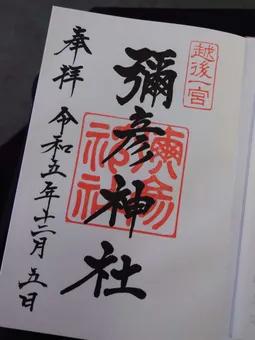 越後一宮
彌彦神社
奉拝
令和五年十二月五日